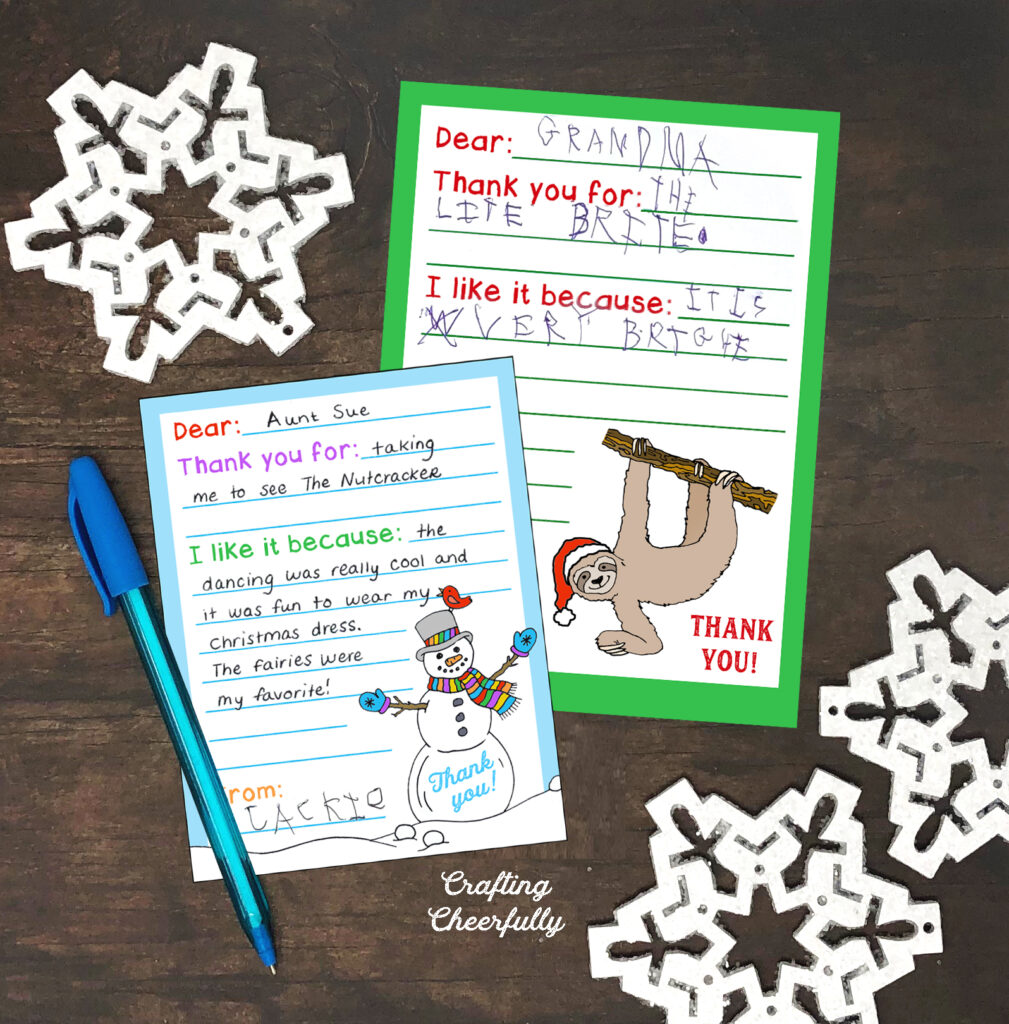 Dear: GRANDMA
Thank you for: THE
LITE BRITE.
I like it because: IT IS
VERY BRIGHE
THANK
YOU!
Dear: Aunt Sue
Thank you for: taking
me to see The Nutcracker
I like it because: the
dancing was really cool and
it was fun to wear my
Christmas dress.
The fairies were
my favorite!
Thank
you!
rom:
JACKIE
Crafting
Cheerfully